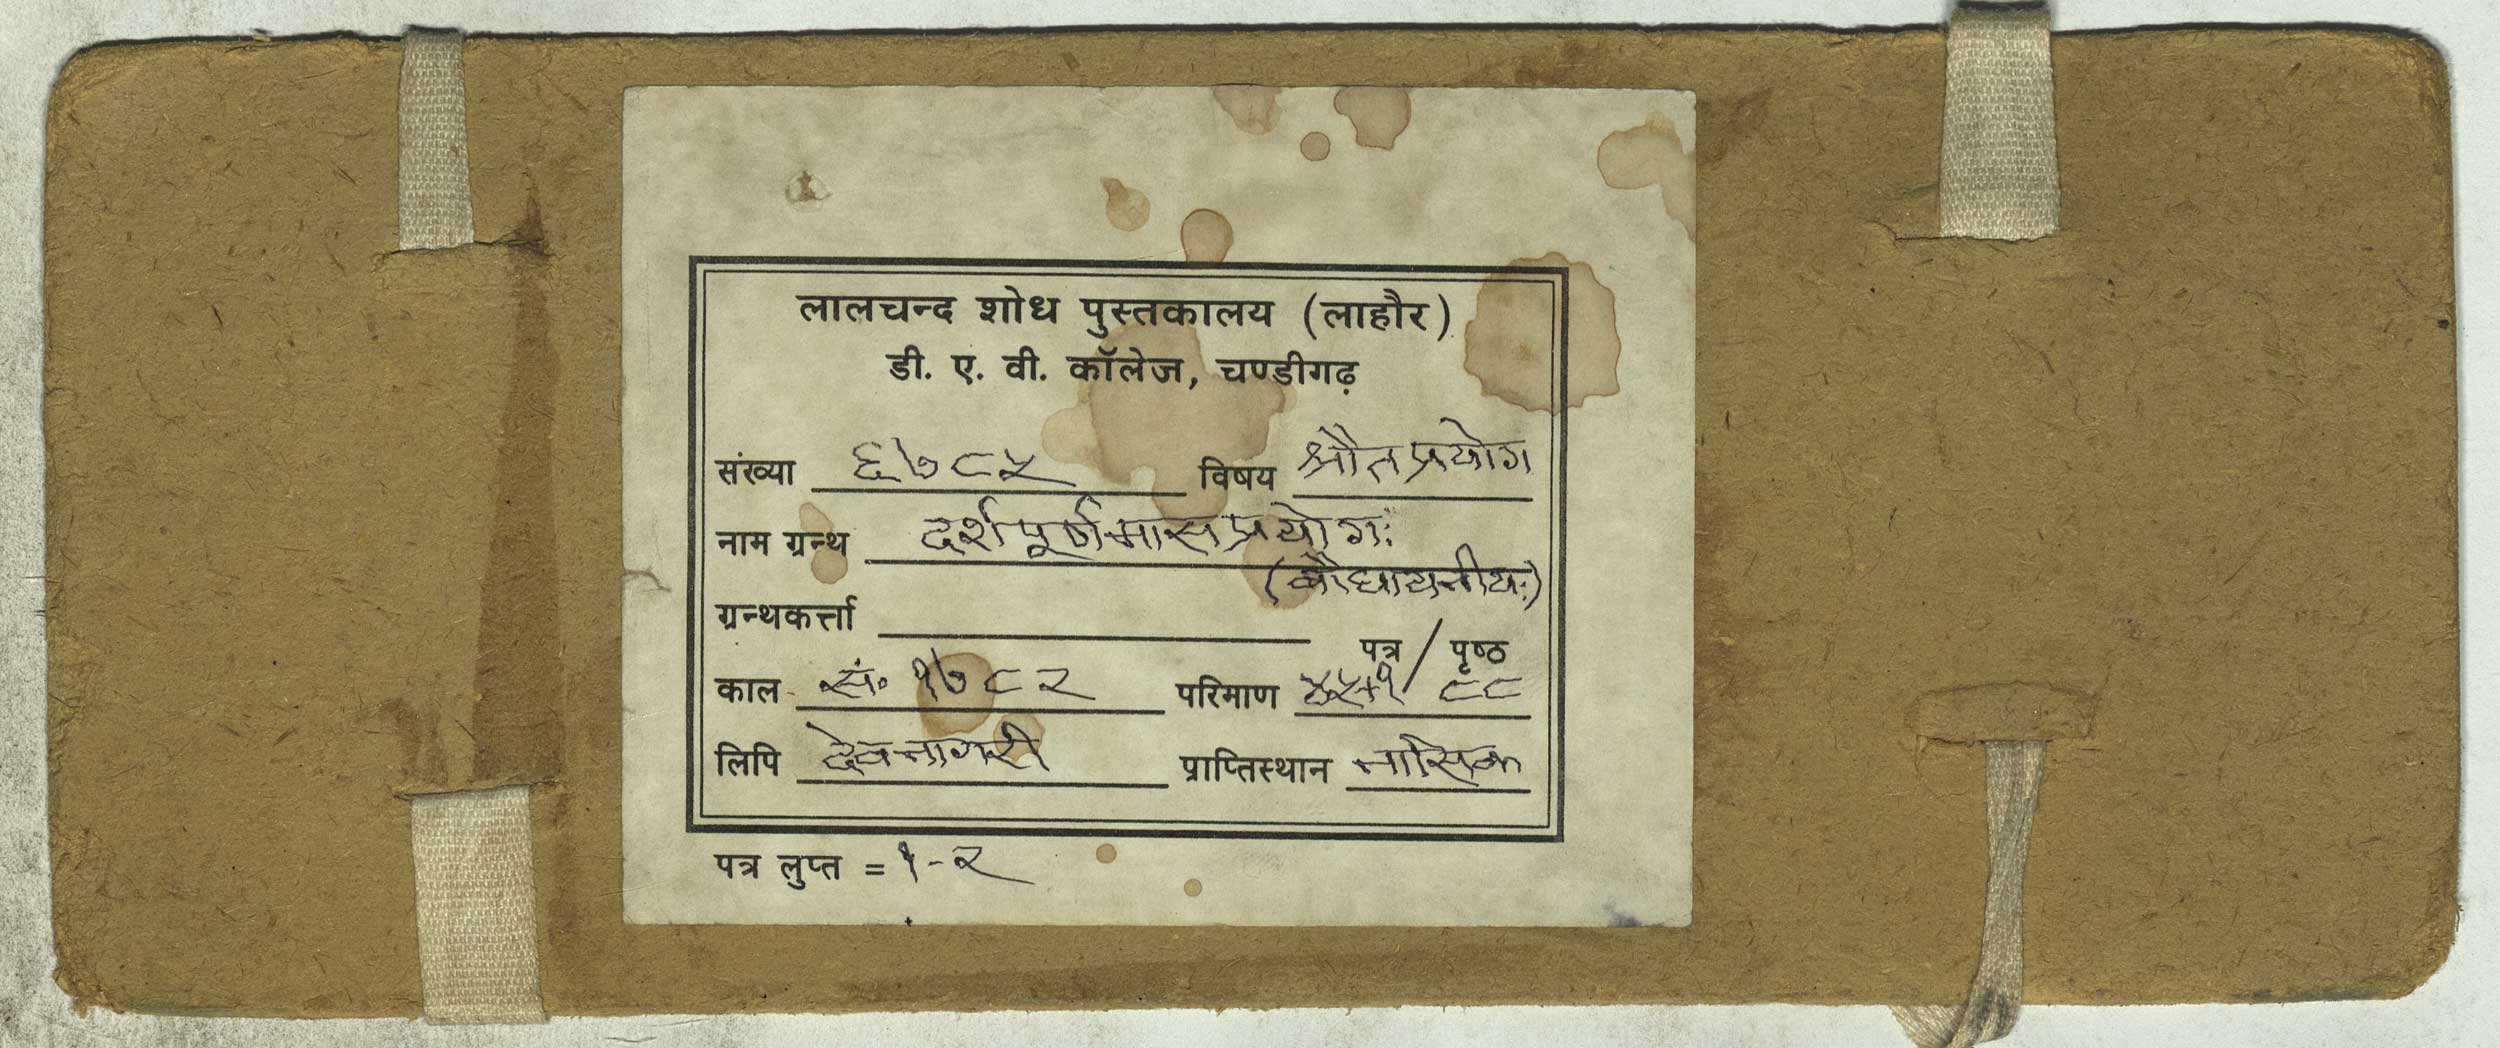 लालचन्द शोध पुस्तकालय (लाहौर)
डी. ए. वी. कॉलेज, चण्डीगढ़
संख्या ६७८५ विषय श्रौतप्रयोग
नाम ग्रन्थ दर्शपूर्णमासप्रयोगः
(बौधायनीयः)
ग्रन्थकर्त्ता
पत्र / पृष्ठ
काल सं. १७८२ परिमाण ४५+१/ ८८
लिपि देवनागरी प्राप्तिस्थान नासिक
पत्र लुप्त = १-२